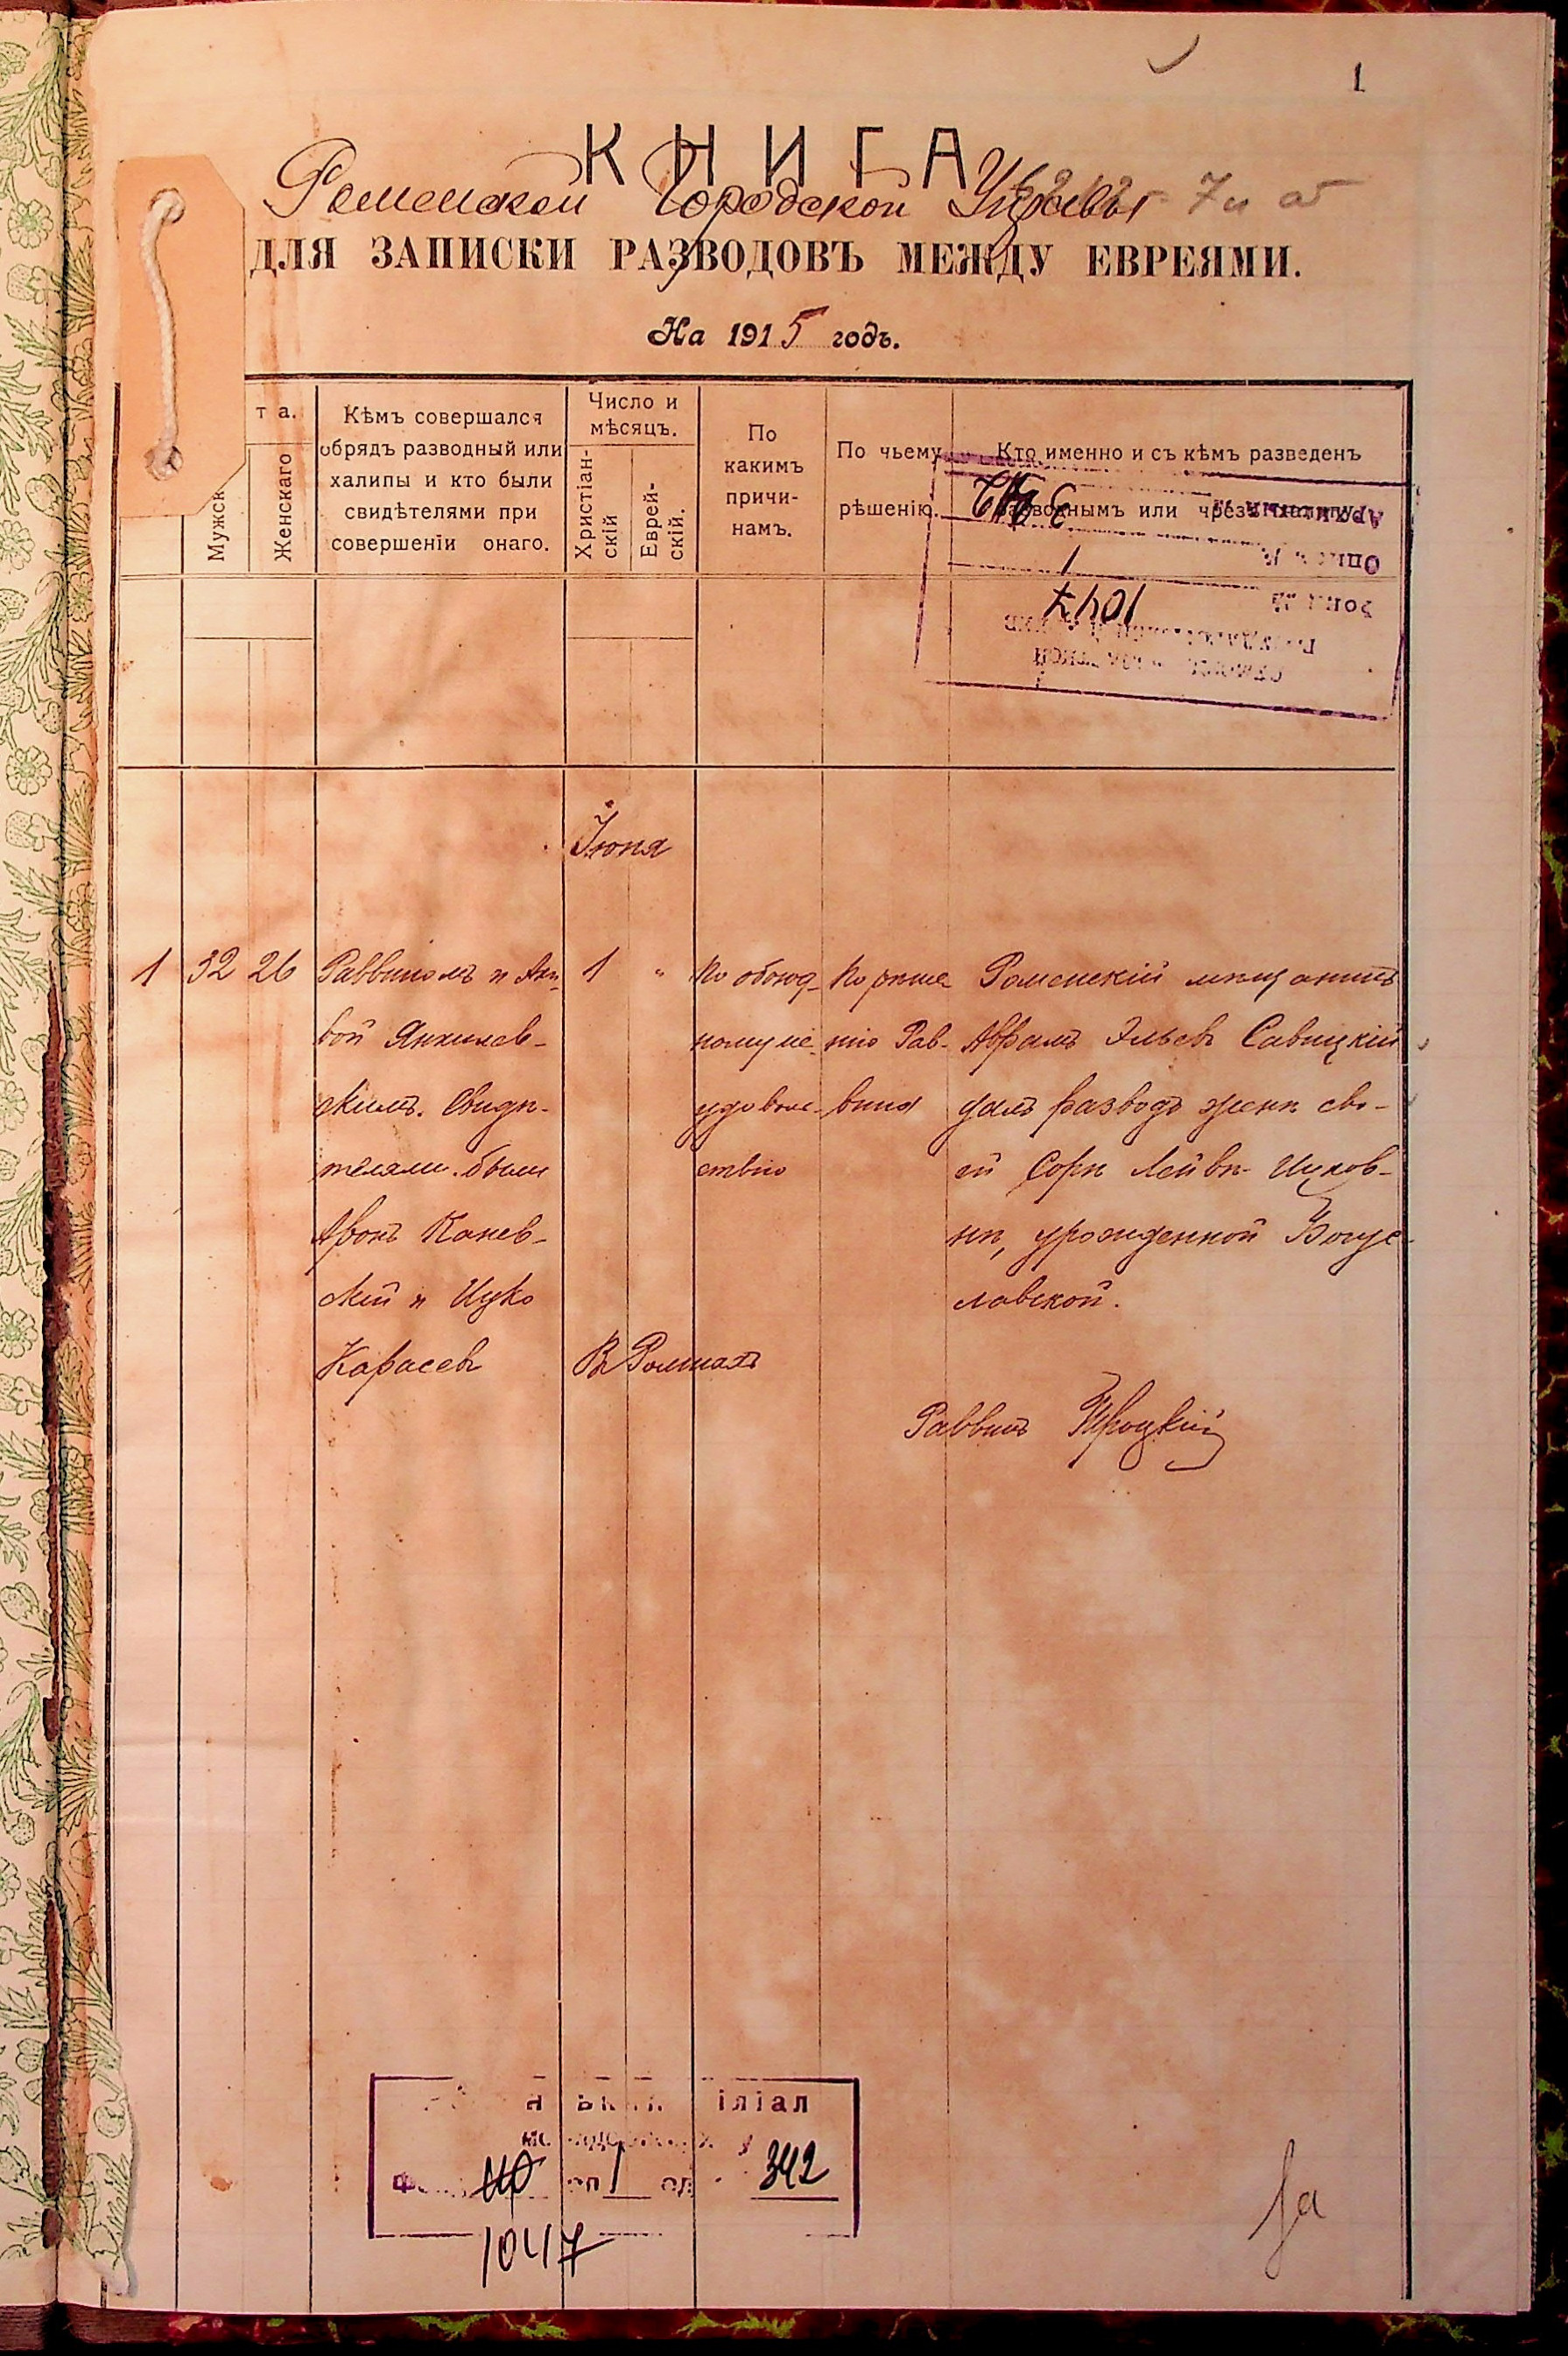 1
КНИГА
Роменской Городской Управы
ДЛЯ ЗАПИСКИ РАЗВОДОВЪ МЕЖДУ ЕВРЕЯМИ.
На 1915 годъ.
та.
Мужск
Женскаго
Кѣмъ совершался
обрядъ разводный или
халипы и кто были
свидѣтелями при
совершеніи онаго.
Число и
мѣсяцъ.
Христіан-
скій
Еврей-
скій.
По
какимъ
причи-
намъ.
По чьему
рѣшенію.
Кто именно и съ кѣмъ разведенъ
разводнымъ или чрезъ халипу.
1
1047
Іюня
1 32 26
Раввиномъ и Аки
вой Янкилев-
скимъ. Свидѣ-
телями были
Аронъ Канев-
скій и Ицко
Карасевъ
1 "
Въ Ромнахъ
По обоюд-
ному не
удоволь-
ствію
По рѣше
нію Рав-
вина
Роменскій мѣщанинъ
Абрамъ Эльевъ Савицкій
далъ разводъ женѣ сво-
ей Сорѣ Лейвѣ Ицков-
нѣ, урожденной Богус-
лавской.
Раввинъ Троцкій
іліал
оп 1 од 342
1047